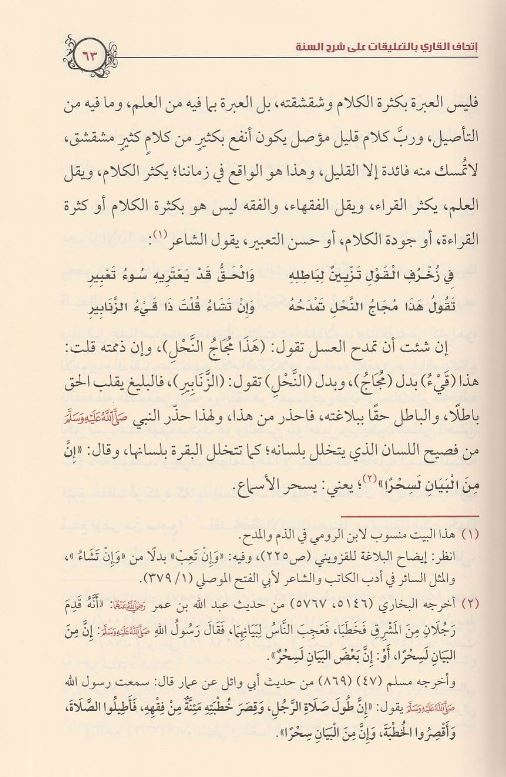 إتحاف القاري بالتعليقات على شرح السنة
٦٣
فليس العبرة بكثرة الكلام وشقشقته، بل العبرة بما فيه من العلم، وما فيه من
التأصيل، وربَّ كلام قليل مؤصل يكون أنفع بكثيرٍ من كلامٍ كثيرٍ مشقشق،
لاتُمسك منه فائدة إلا القليل، وهذا هو الواقع في زماننا؛ يكثر الكلام، ويقل
العلم، يكثر القراء، ويقل الفقهاء، والفقه ليس هو بكثرة الكلام أو كثرة
القراءة، أو جودة الكلام، أو حسن التعبير، يقول الشاعر(١):
فِي زُخْرُفِ الْقَوْلِ تَزْيِينٌ لِبَاطِلِهِ وَالْحَقُّ قَدْ يَعْتَرِيهِ سُوءُ تَعْبِيرِ
تَقُولُ هَذَا مُجَاجُ النَّحْلِ تَمْدَحُهُ وَإِنْ تَشَاءُ قُلْتَ ذَا قَيْءُ الزَّنَابِيرِ
إن شئت أن تمدح العسل تقول: (هَذَا مُجَاجُ النَّحْلِ)، وإن ذممته قلت:
هذا (قَيْءُ) بدل (مُجَاجُ)، وبدل (النَّحْلِ) تقول: (الزَّنَابِيرِ)، فالبليغ يقلب الحق
باطلًا، والباطل حقًّا ببلاغته، فاحذر من هذا، ولهذا حذّر النبي ﷺ
من فصيح اللسان الذي يتخلل بلسانه؛ كما تتخلل البقرة بلسانها، وقال: «إِنَّ
مِنَ الْبَيَانِ لَسِحْرًا»(٢)؛ يعني: يسحر الأسماع.
(١) هذا البيت منسوب لابن الرومي في الذم والمدح.
انظر: إيضاح البلاغة للقزويني (ص٢٢٥)، وفيه: «وَإِنْ تَعِبْ» بدلًا من «وَإِنْ تَشَاءُ»،
والمثل السائر في أدب الكاتب والشاعر لأبي الفتح الموصلي (١/ ٣٧٩).
(٢) أخرجه البخاري (٥١٤٦، ٥٧٦٧) من حديث عبد الله بن عمر رضي الله عنهما: «أَنَّهُ قَدِمَ
رَجُلَانِ مِنَ الْمَشْرِقِ فَخَطَبَا، فَعَجِبَ النَّاسُ لِبَيَانِهِمَا، فَقَالَ رَسُولُ اللهِ ﷺ: إِنَّ مِنَ
البَيَانِ لَسِحْرًا، أَوْ: إِنَّ بَعْضَ البَيَانِ لَسِحْرٌ».
وأخرجه مسلم (٤٧) (٨٦٩) من حديث أبي وائل عن عمار قال: سمعت رسول الله
ﷺ يقول: «إِنَّ طُولَ صَلَاةِ الرَّجُلِ، وَقِصَرَ خُطْبَتِهِ مَئِنَّةٌ مِنْ فِقْهِهِ، فَأَطِيلُوا الصَّلَاةَ،
وَأَقْصِرُوا الْخُطْبَةَ، وَإِنَّ مِنَ الْبَيَانِ سِحْرًا».